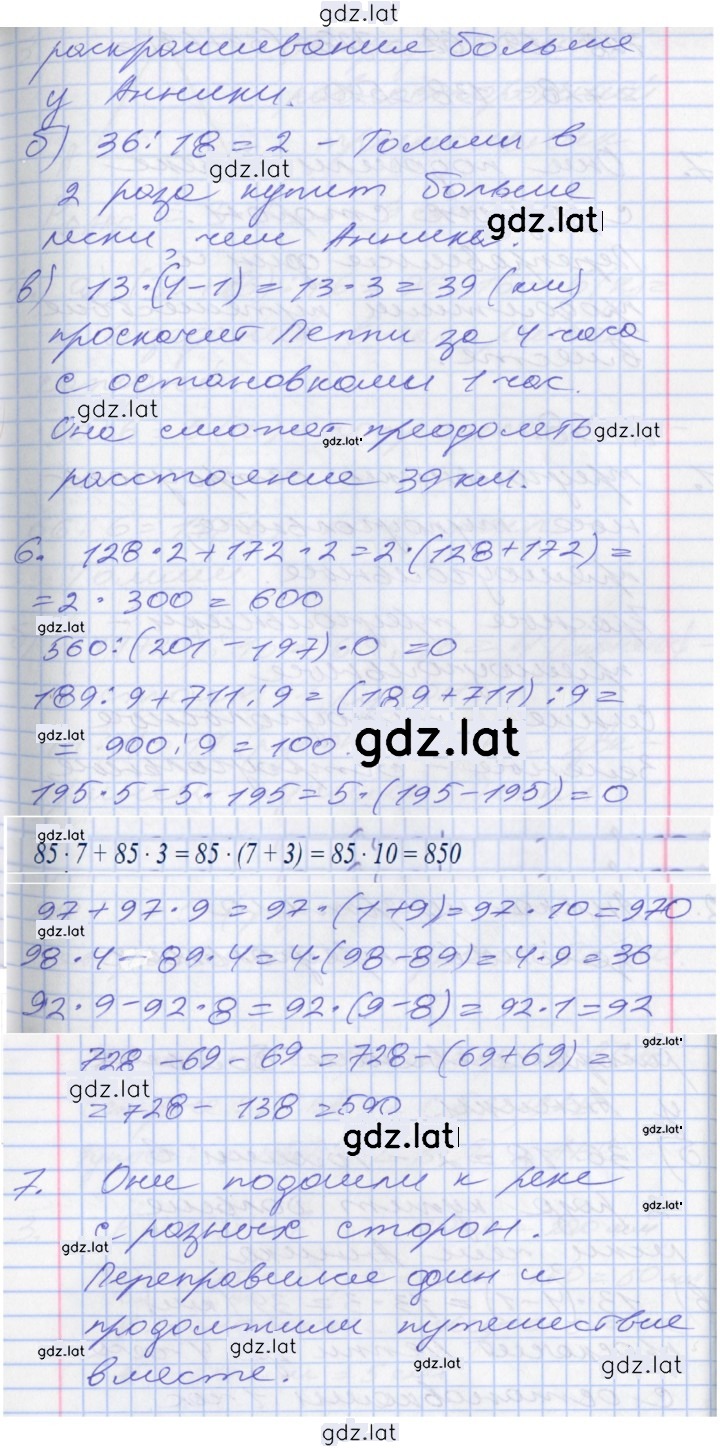 gdz.lat
раскрашивание больше
у Анники.
б) 36:18=2 – Томми в
gdz.lat
2 раза купит больше
gdz.lat
лески, чем Анника.
в) 13·(4-1)=13·3=39 (км)
проскачет Пеппи за 4 часа
с остановками 1 час.
gdz.lat
Она сможет преодолеть
gdz.lat gdz.lat
расстояние 39 км.
6. 128·2+172·2=2·(128+172)=
=2·300=600
gdz.lat
560:(201-197)·0=0
189:9+711:9=(189+711):9=
gdz.lat
=900:9=100
gdz.lat
195·5-5·195=5·(195-195)=0
gdz.lat
85·7+85·3=85·(7+3)=85·10=850
97+97·9=97·(1+9)=97·10=970
gdz.lat
98·4-89·4=4·(98-89)=4·9=36
92·9-92·8=92·(9-8)=92·1=92
gdz.lat
728-69-69=728-(69+69)=
gdz.lat
=728-138=590
gdz.lat gdz.lat
7. Они подошли к реке
gdz.lat
с разных сторон.
gdz.lat
Переправился один и
продолжили путешествие
gdz.lat gdz.lat
вместе.
gdz.lat gdz.lat
gdz.lat